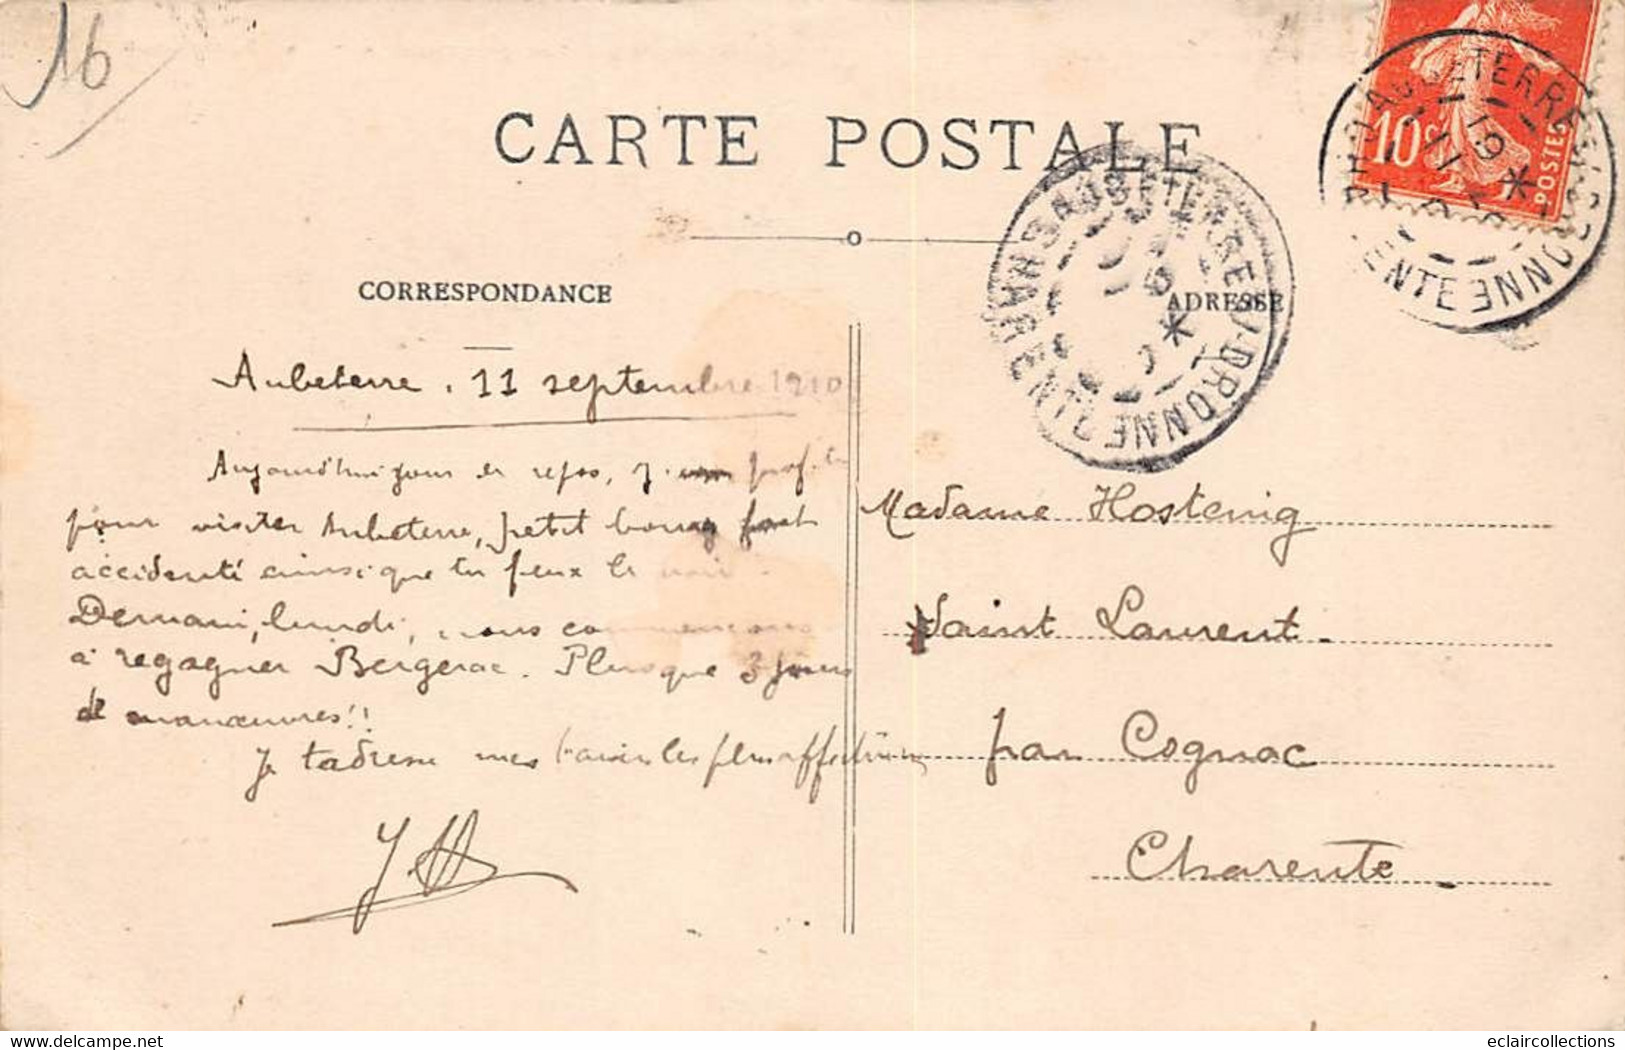 16
CARTE POSTALE
10c
POSTES
AUBETERRE-S-DRONNE
CHARENTE
AUBETERRE-S-DRONNE
CHARENTE
CORRESPONDANCE
ADRESSE
Aubeterre, 11 septembre 1910
Aujourd'hui jour de repos, j'en profite
pour visiter Aubeterre, petit bourg fort
accidenté ainsi que tu peux le voir.
Demain, lundi, nous commençons
à regagner Bergerac. Plus que 3 jours
de manœuvres!!
Je t'adresse mes baisers les plus affectueux
JH
Madame Hosteing
Saint Laurent.
par Cognac
Charente
eclaircollections